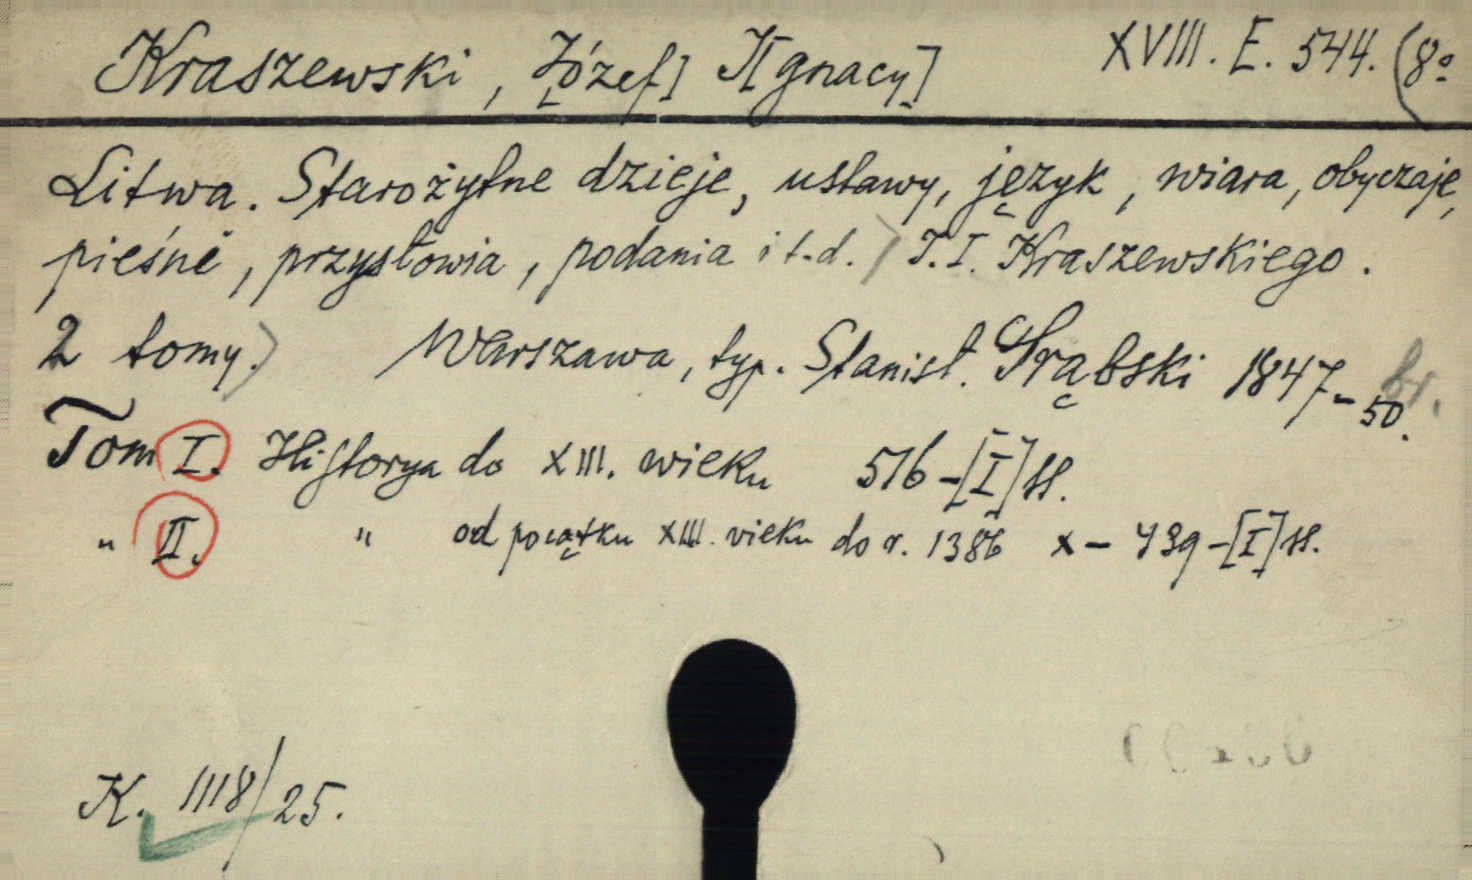 Kraszewski, J[ózef] I[gnacy] XVIII. E. 544. (8º
Litwa. Starożytne dzieje, ustawy, język, wiara, obyczaje,
pieśni, przysłowia, podania i t.d.) J.I. Kraszewskiego.
2 tomy.) Warszawa, typ. Stanisł. Strąbski 1847-50. br.
Tom I. Historya do XIII. wieku 516-[I] ss.
" II. " od początku XIII. wieku do r. 1386 X-439-[I] ss.
K. 1118/25.